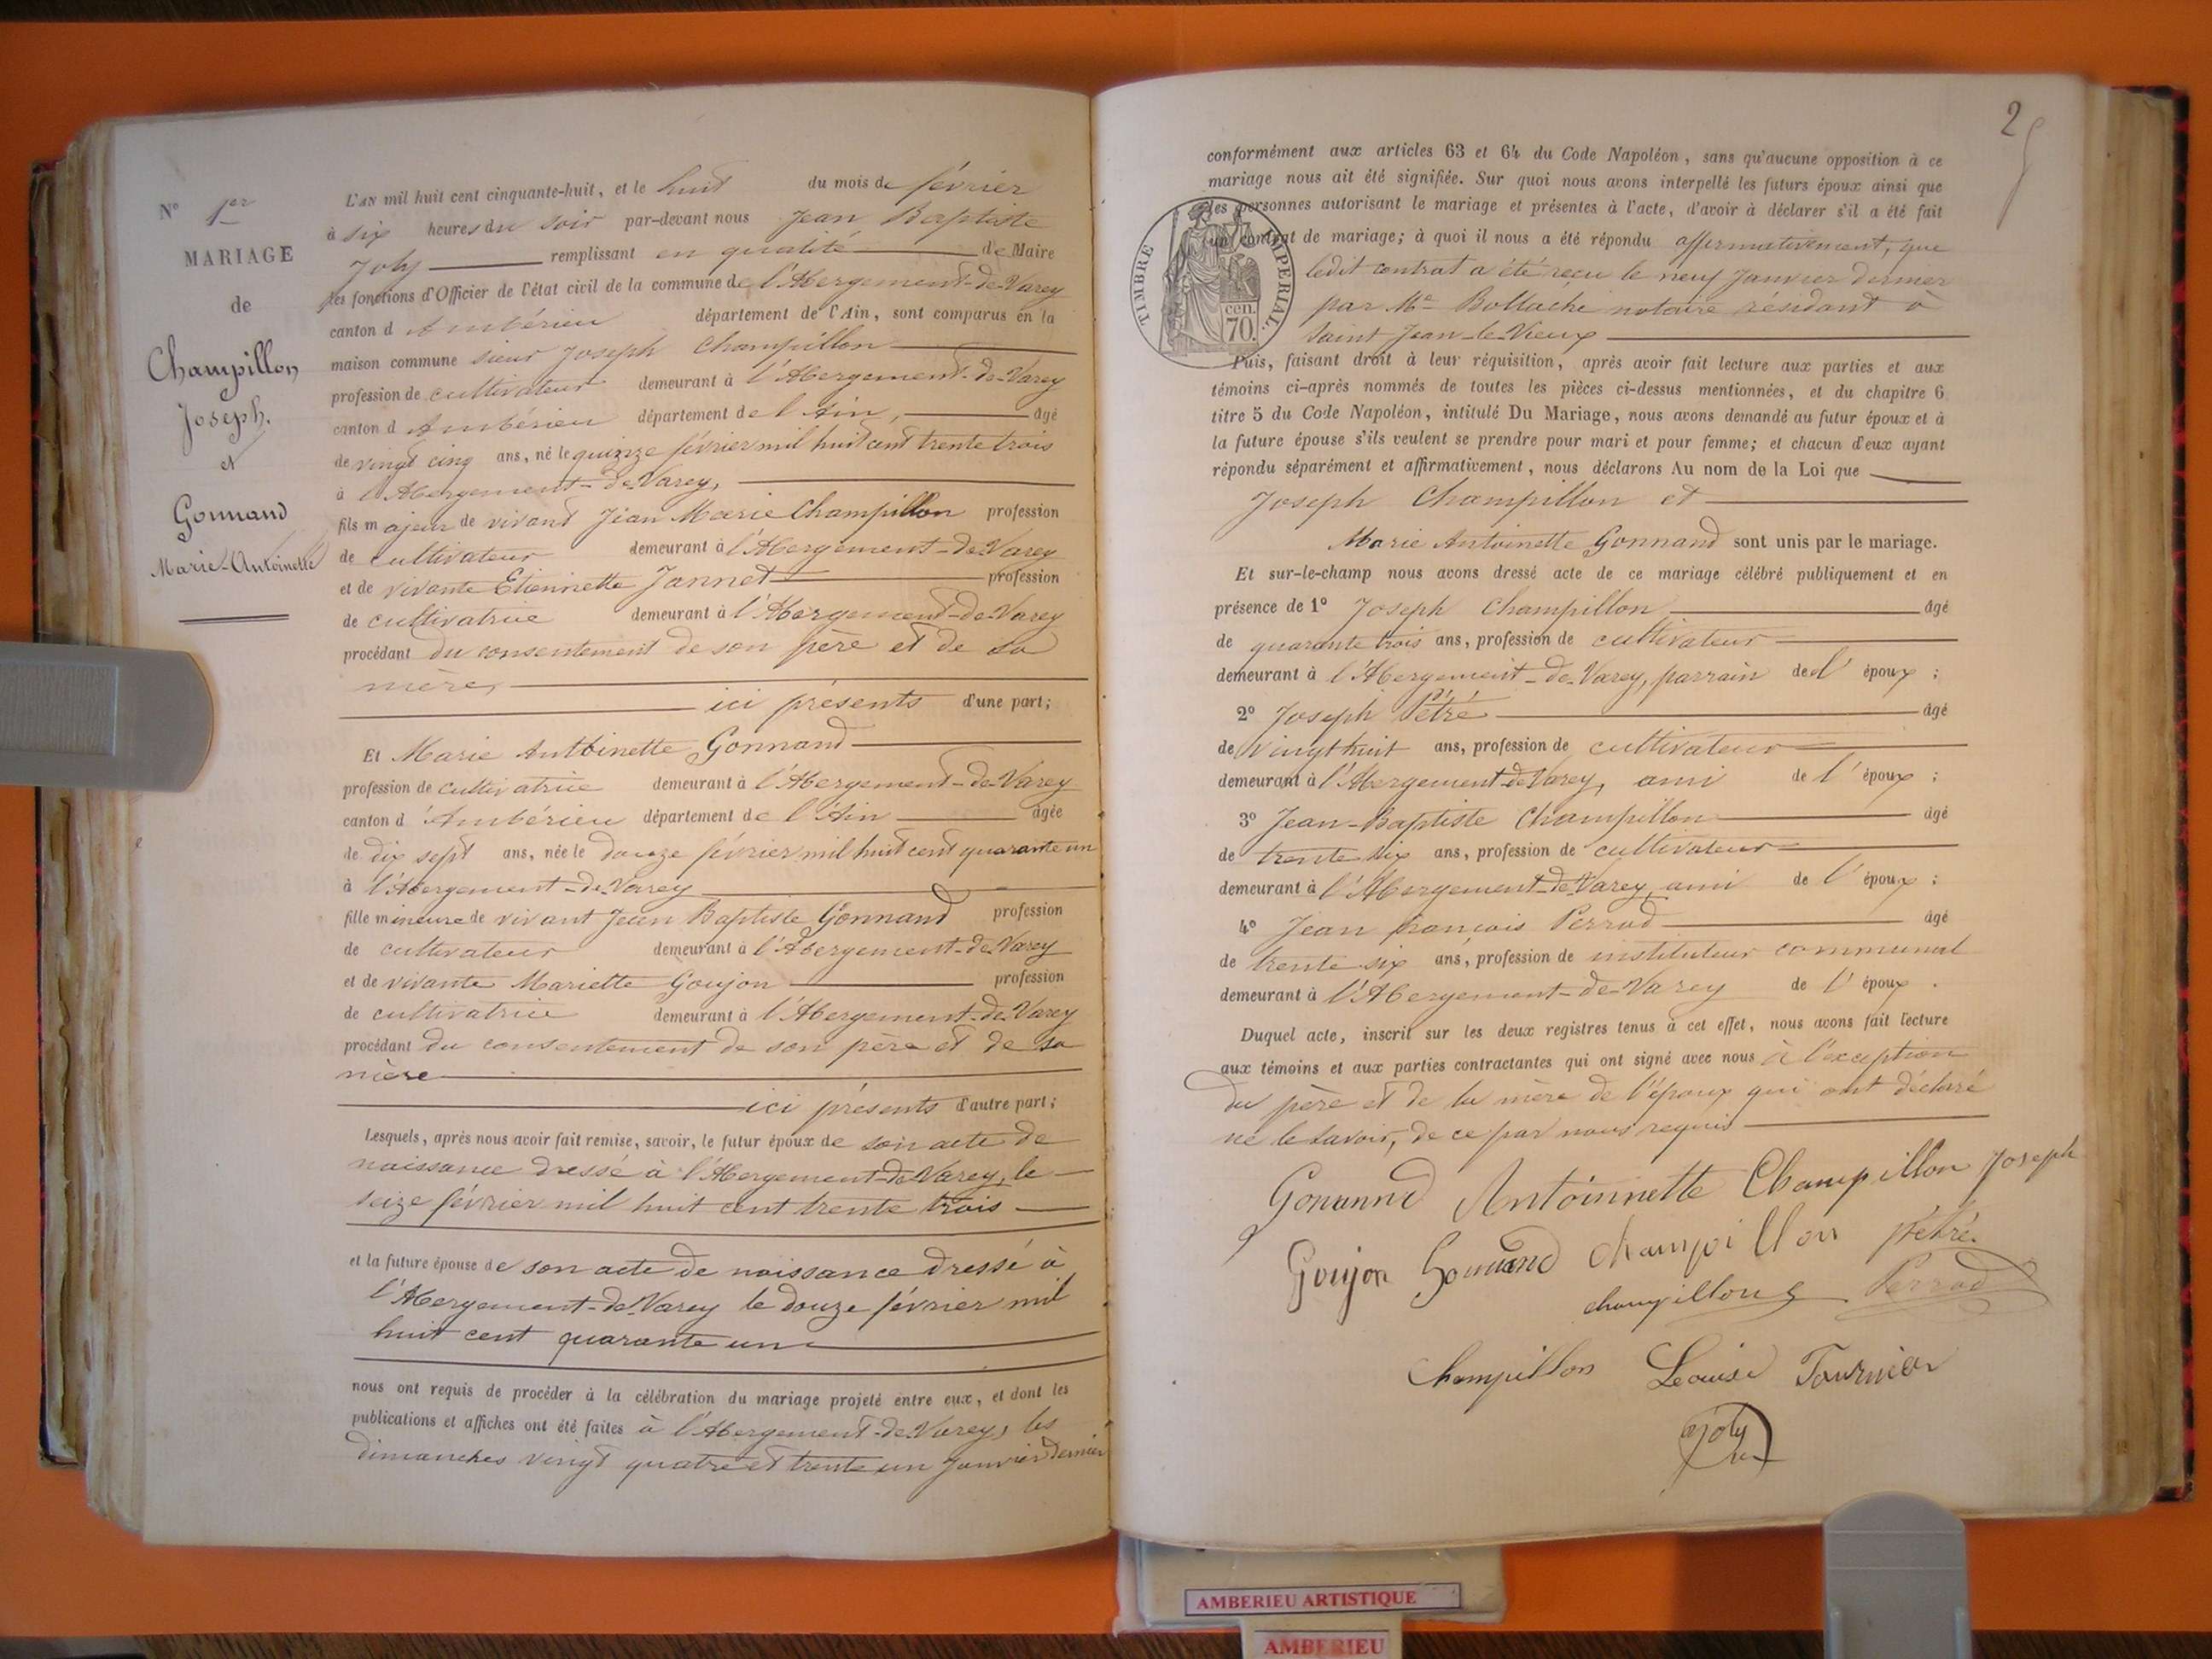 N° 1er
MARIAGE
de
Champillon
Joseph.
et
Gonnand
Marie-Antoinette
L'AN mil huit cent cinquante-huit, et le huit du mois de février
à six heures du soir par-devant nous Jean Baptiste
Joly remplissant en qualité de Maire
les fonctions d'Officier de l'état civil de la commune de l'Abergement-de-Varey
canton d'Ambérieu département de l'Ain, sont comparus en la
maison commune sieur Joseph Champillon
profession de cultivateur demeurant à l'Abergement-de-Varey
canton d'Ambérieu département de l'Ain, âgé
de vingt cinq ans, né le quinze février mil huit cent trente trois
à l'Abergement-de-Varey,
fils majeur de vivant Jean Marie Champillon profession
de cultivateur demeurant à l'Abergement-de-Varey
et de vivante Etiennette Jannet profession
de cultivatrice demeurant à l'Abergement-de-Varey
procédant du consentement de son père et de sa
mère,
ici présents d'une part;
Et Marie Antoinette Gonnand
profession de cultivatrice demeurant à l'Abergement-de-Varey
canton d'Ambérieu département de l'Ain âgée
de dix sept ans, née le douze février mil huit cent quarante un
à l'Abergement-de-Varey
fille mineure de vivant Jean Baptiste Gonnand profession
de cultivateur demeurant à l'Abergement-de-Varey
et de vivante Mariette Goujon profession
de cultivatrice demeurant à l'Abergement-de-Varey
procédant du consentement de son père et de sa
mère
ici présents d'autre part;
Lesquels, après nous avoir fait remise, savoir, le futur époux de son acte de
naissance dressé à l'Abergement-de-Varey, le
seize février mil huit cent trente trois
et la future épouse de son acte de naissance dressé à
l'Abergement-de-Varey le douze février mil
huit cent quarante un
nous ont requis de procéder à la célébration du mariage projeté entre eux, et dont les
publications et affiches ont été faites à l'Abergement-de-Varey, les
dimanches vingt quatre et trente un Janvier dernier
2
conformément aux articles 63 et 64 du Code Napoléon, sans qu'aucune opposition à ce
mariage nous ait été signifiée. Sur quoi nous avons interpellé les futurs époux ainsi que
les personnes autorisant le mariage et présentes à l'acte, d'avoir à déclarer s'il a été fait
un contrat de mariage; à quoi il nous a été répondu affirmativement, que
ledit contrat a été reçu le neuf Janvier dernier
par Me Bollache notaire résidant à
Saint-Jean-le-Vieux
TIMBRE IMPERIAL.
cen.
70.
Puis, faisant droit à leur réquisition, après avoir fait lecture aux parties et aux
témoins ci-après nommés de toutes les pièces ci-dessus mentionnées, et du chapitre 6
titre 5 du Code Napoléon, intitulé Du Mariage, nous avons demandé au futur époux et à
la future épouse s'ils veulent se prendre pour mari et pour femme; et chacun d'eux ayant
répondu séparément et affirmativement, nous déclarons Au nom de la Loi que
Joseph Champillon et
Marie Antoinette Gonnand sont unis par le mariage.
Et sur-le-champ nous avons dressé acte de ce mariage célébré publiquement et en
présence de 1° Joseph Champillon âgé
de quarante trois ans, profession de cultivateur
demeurant à l'Abergement-de-Varey, parrain de l'époux;
2° Joseph Pétré âgé
de vingt huit ans, profession de cultivateur
demeurant à l'Abergement-de-Varey, ami de l'époux;
3° Jean-Baptiste Champillon âgé
de trente six ans, profession de cultivateur
demeurant à l'Abergement-de-Varey, ami de l'époux;
4° Jean François Perrod âgé
de trente six ans, profession de instituteur communal
demeurant à l'Abergement-de-Varey de l'époux.
Duquel acte, inscrit sur les deux registres tenus à cet effet, nous avons fait lecture
aux témoins et aux parties contractantes qui ont signé avec nous à l'exception
du père et de la mère de l'époux qui ont déclaré
ne le savoir, de ce par nous requis
Gonannd Antoinnette Champillon Joseph
Goujon Gonnand champillon pétré.
champillon Perrod
Champillon Louise Tournier
Joly
AMBERIEU ARTISTIQUE
AMBERIEU